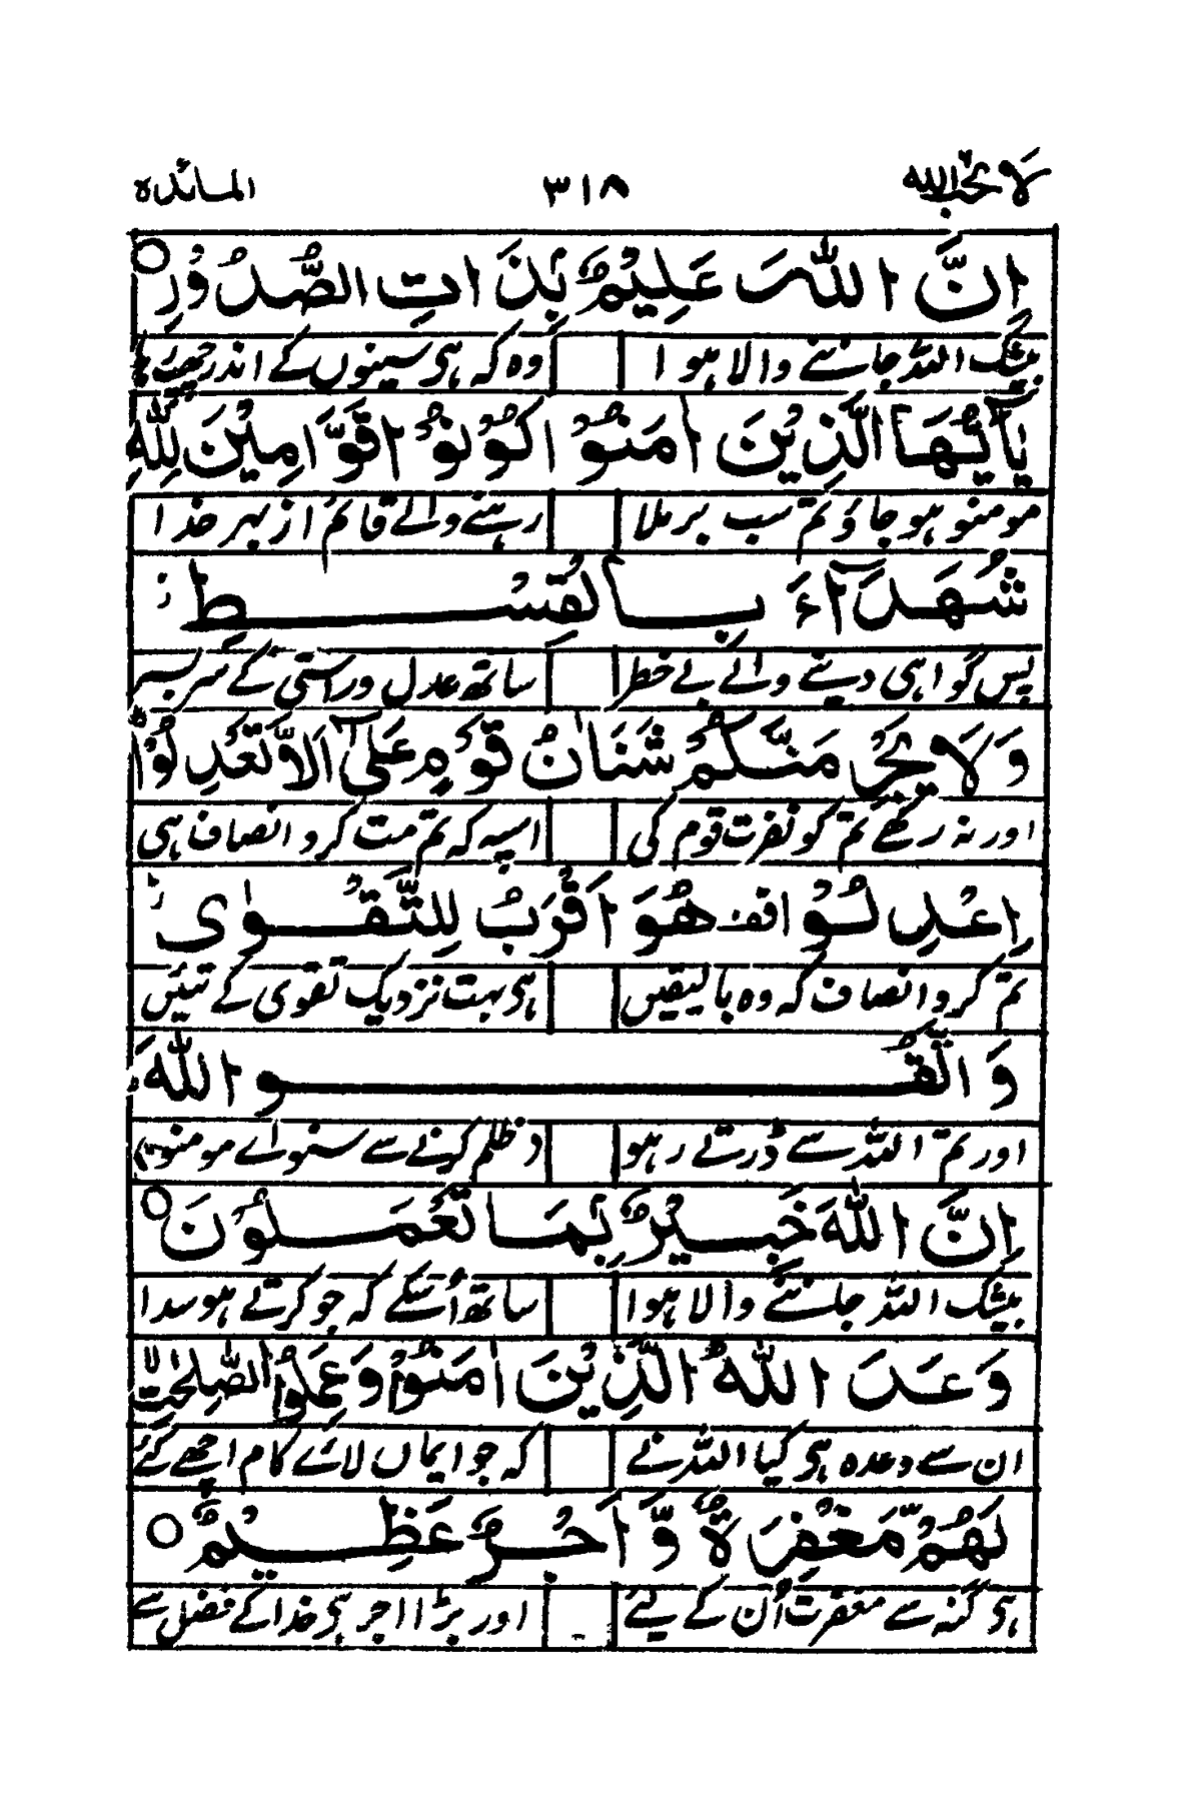 لا یحب الله ۳۱۸ المائدة
اِنَّ اللّٰهَ عَلِیْمٌۢ بِذَاتِ الصُّدُوْرِ
بیشک اللہ جاننے والا ہو ا وہ کہ ہی سینوں کے اندر چھپے
یٰۤاَیُّهَا الَّذِیْنَ اٰمَنُوْا كُوْنُوْا قَوَّامِیْنَ لِلّٰهِ
مومنو ہو جاؤ تم سب برملا رہنے والے قائم از بہر خدا
شُهَدَآءَ بِالْقِسْطِ ز
پس گواہی دینے والے بے خطر ساتھ عدل و راستی کے سربسر
وَلَا یَجْرِمَنَّكُمْ شَنَاٰنُ قَوْمٍ عَلٰۤی اَلَّا تَعْدِلُوْا ط
اور نہ رکھے تم کو نفرت قوم کی اسپہ کہ تم مت کرو انصاف ہی
اِعْدِلُوْا قف هُوَ اَقْرَبُ لِلتَّقْوٰی ز
تم کرو انصاف کہ وہ بالیقیں ہی بہت نزدیک تقوی کے تئیں
وَاتَّقُوا اللّٰهَ ط
اور تم اللہ سے ڈرتے رہو (ظلم کرنے سے سنو اے مومنو)
اِنَّ اللّٰهَ خَبِیْرٌۢ بِمَا تَعْمَلُوْنَ
بیشک اللہ جاننے والا ہوا ساتھ اُسکے کہ جو کرتے ہو سدا
وَعَدَ اللّٰهُ الَّذِیْنَ اٰمَنُوْا وَعَمِلُوا الصّٰلِحٰتِ لا
ان سے وعدہ ہی کیا اللہ نے کہ جو ایماں لائے کام اچھے کئے
لَهُمْ مَّغْفِرَةٌ وَّاَجْرٌ عَظِیْمٌ
ہی گنہ سے مغفرت اُن کے لیے اور بڑا اجر ہی خدا کے فضل سے